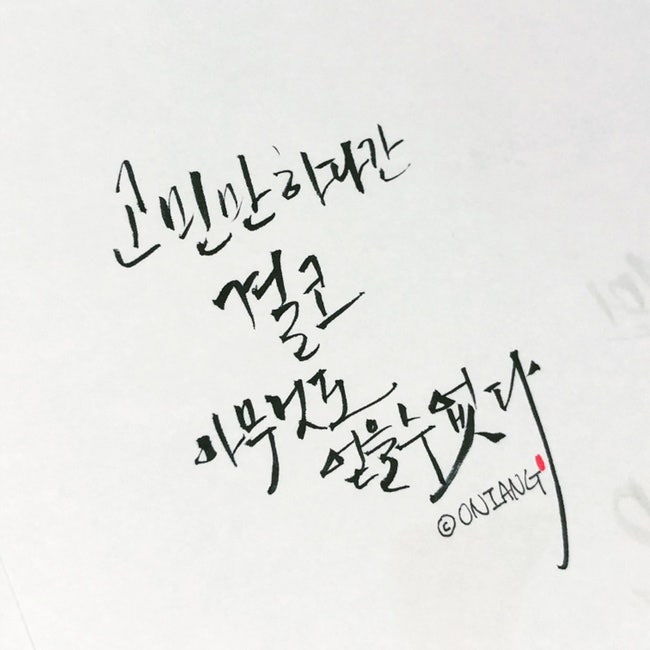 고민만하다간
결코
아무것도
얻을수없다
©ONIANG